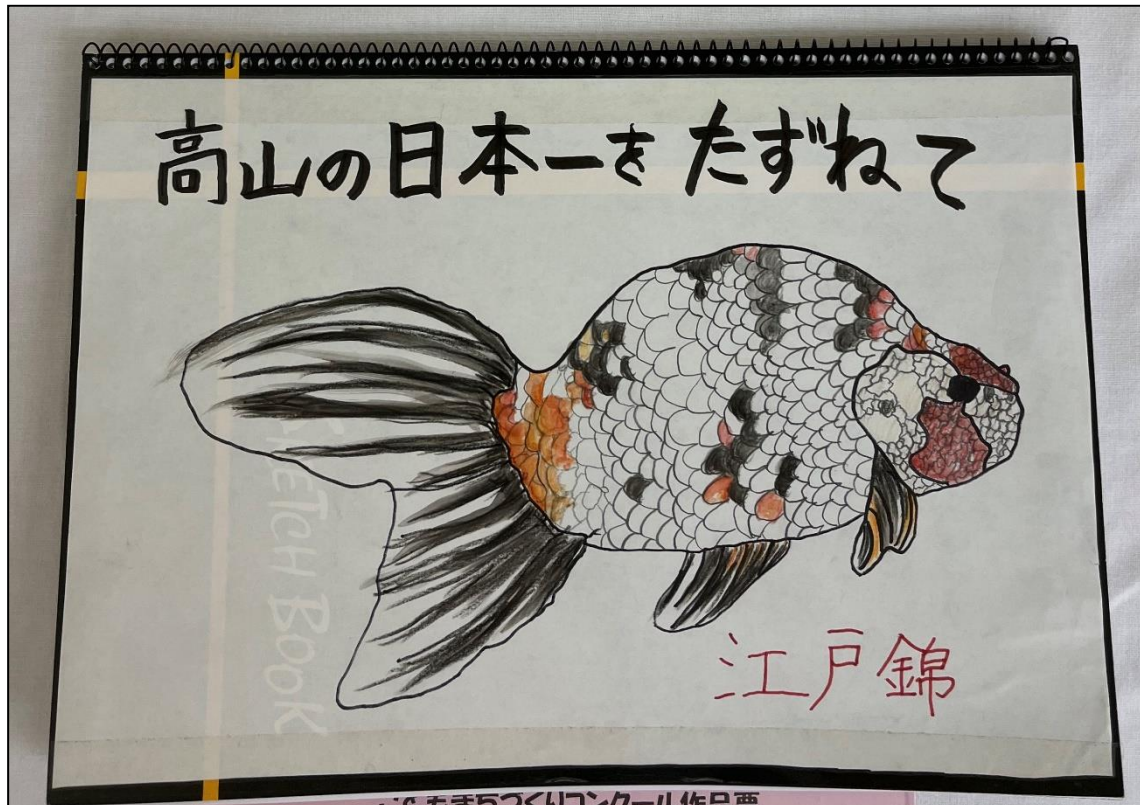 高山の日本一をたずねて
SKETCH BOOK
江戸錦
まちづくりコンクール作品票